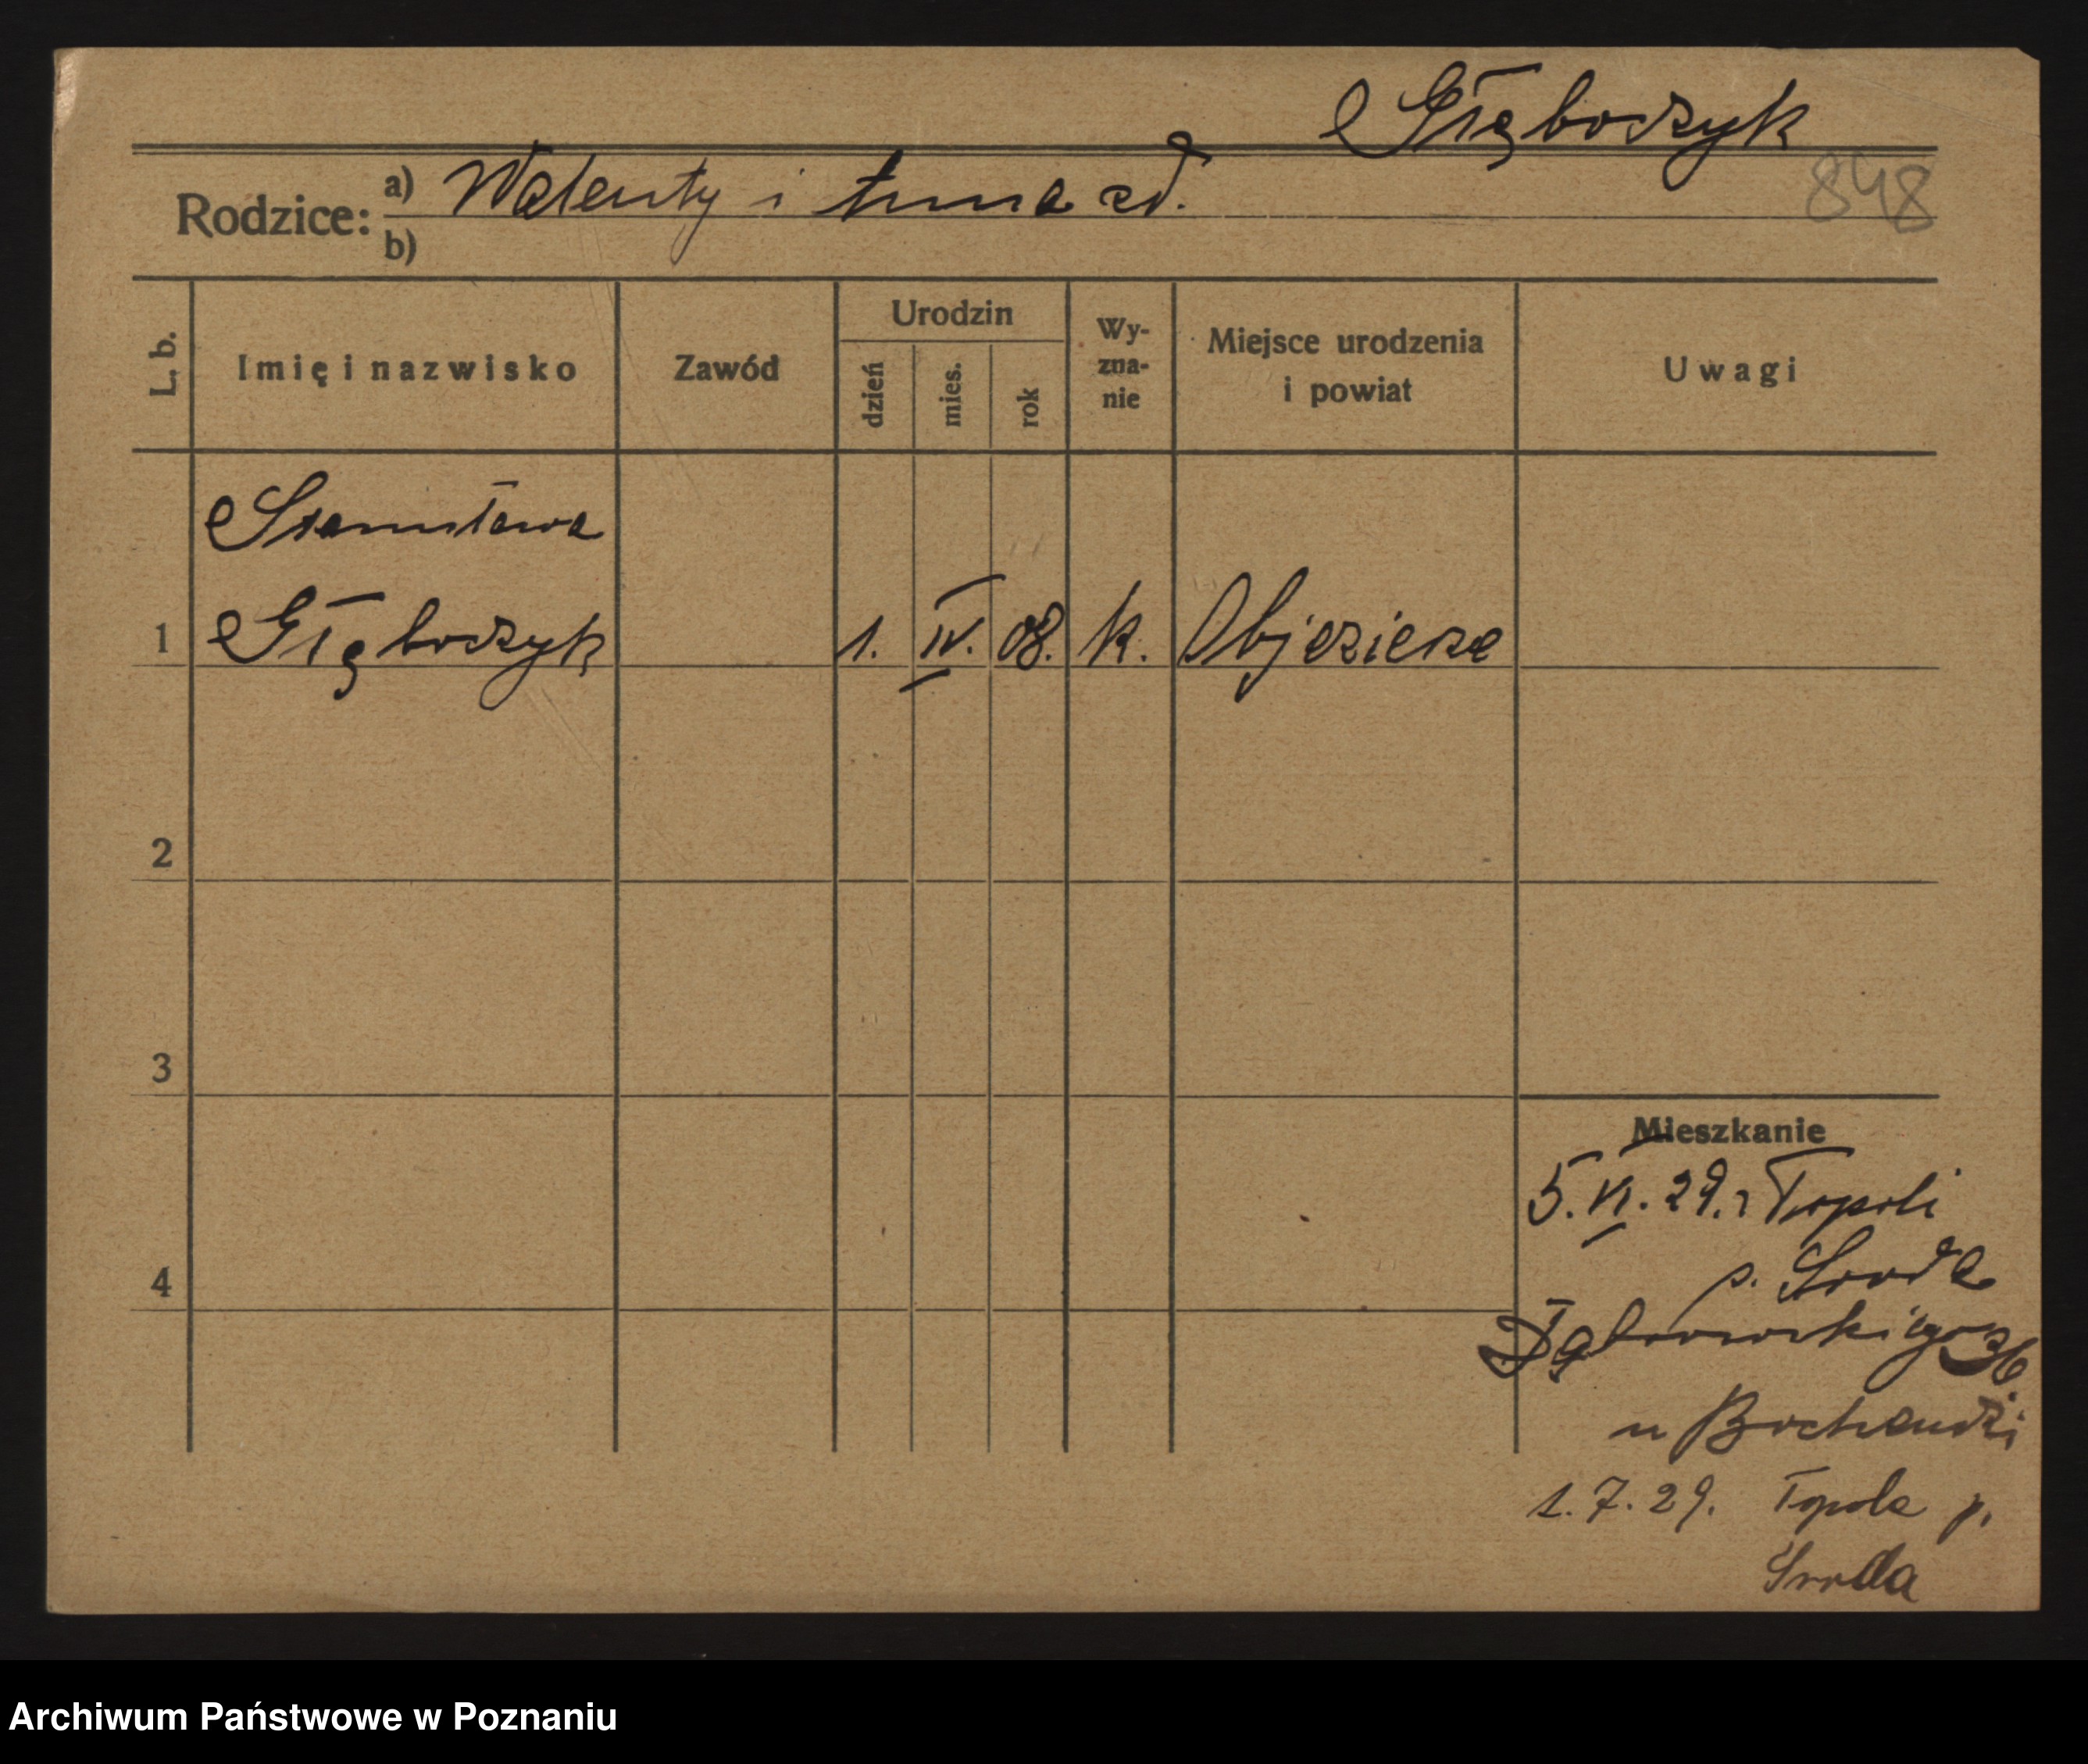 Głęboczyk
848
Rodzice: a) Walenty i Anna zd.
b)
L. b.
Imię i nazwisko
Zawód
Urodzin
dzień
mies.
rok
Wy-
zna-
nie
Miejsce urodzenia
i powiat
Uwagi
Stanisława
1 Głęboczyk 1. IV. 08. k. Objezierze
2
3
4
Mieszkanie
5. VI. 29. z Topoli
p. Środa
Dąbrowskiego 36
u
1. 7. 29. Topola p.
Środa
Archiwum Państwowe w Poznaniu